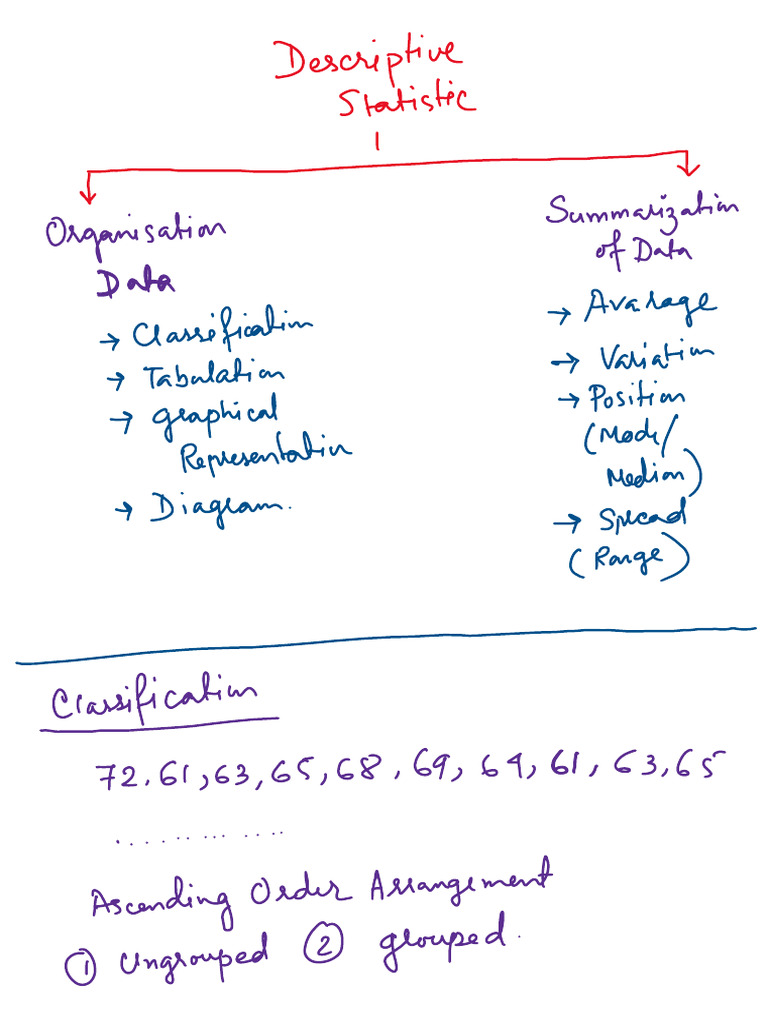 Descriptive
Statistic
Organisation
Data
→ Classification
→ Tabulation
→ graphical
Representation
→ Diagram.
Summarization
of Data
→ Avarage
→ Variation
→ Position
(Mode/
Median)
→ Spread
(Range)
Classification
72, 61, 63, 65, 68, 69, 64, 61, 63, 65
.............
Ascending Order Arrangement
① Ungrouped ② grouped.